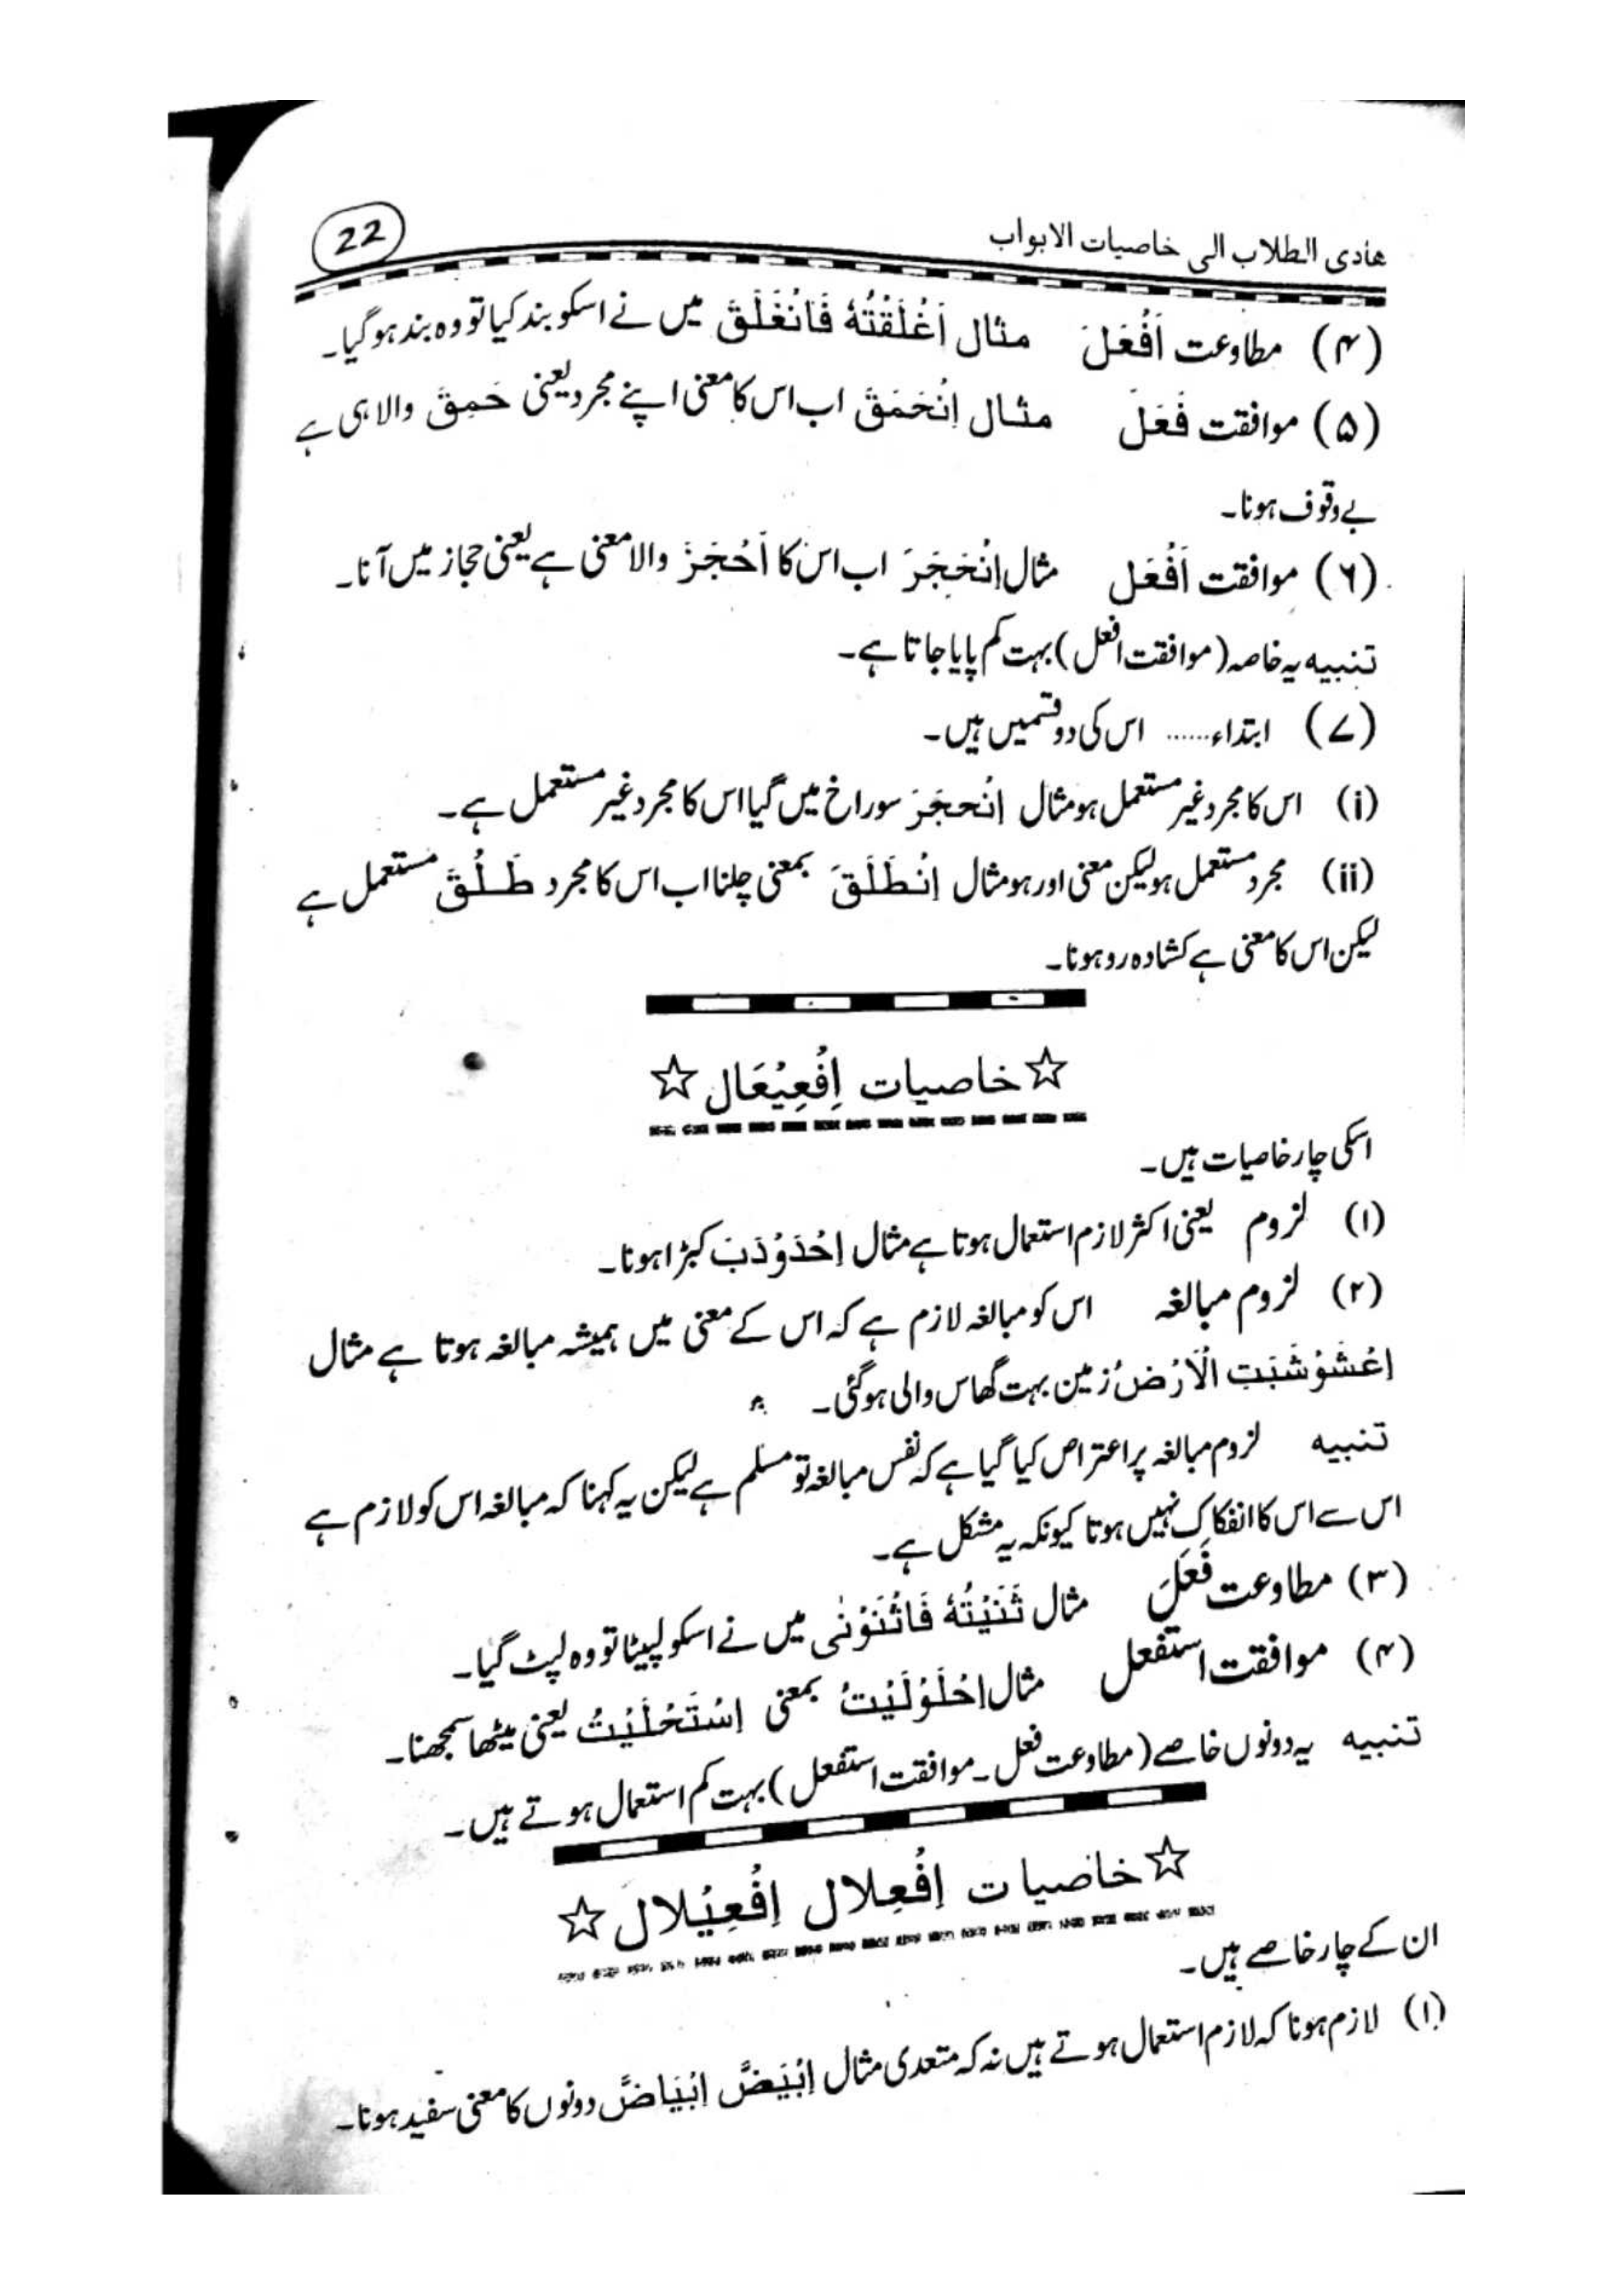 ھادی الطلاب الی خاصیات الابواب
22
(۴) مطاوعت اَفْعَلَ مثال اَغْلَقْتُهٗ فَانْغَلَقَ میں نے اسکو بند کیا تو وہ بند ہو گیا۔
(۵) موافقت فَعَلَ مثال اِنْحَمَقَ اب اس کا معنی اپنے مجرد یعنی حَمِقَ والا ہی ہے
بے وقوف ہونا۔
(۶) موافقت اَفْعَل مثال اِنْحَجَرَ اب اس کا اَحْجَزَ والا معنی ہے یعنی حجاز میں آنا۔
تنبیه یہ خاصہ (موافقت افعل) بہت کم پایا جاتا ہے۔
(۷) ابتداء...... اس کی دو قسمیں ہیں۔
(i) اس کا مجرد غیر مستعمل ہو مثال اِنْحجَرَ سوراخ میں گیا اس کا مجرد غیر مستعمل ہے۔
(ii) مجرد مستعمل ہو لیکن معنی اور ہو مثال اِنْطَلَقَ بمعنی چلنا اب اس کا مجرد طَلُقَ مستعمل ہے
لیکن اس کا معنی ہے کشادہ رو ہونا۔
☆خاصیات اِفْعِیْعَال☆
اسکی چار خاصیات ہیں۔
(۱) لزوم یعنی اکثر لازم استعمال ہوتا ہے مثال اِحْدَوْدَبَ کبڑا ہونا۔
(۲) لزوم مبالغہ اس کو مبالغہ لازم ہے کہ اس کے معنی میں ہمیشہ مبالغہ ہوتا ہے مثال
اِعْشَوْشَبَتِ الْاَرْضُ زمین بہت گھاس والی ہو گئی۔
تنبیه لزوم مبالغہ پر اعتراض کیا گیا ہے کہ نفس مبالغہ تو مسلم ہے لیکن یہ کہنا کہ مبالغہ اس کو لازم ہے
اس سے اس کا انفکاک نہیں ہوتا کیونکہ یہ مشکل ہے۔
(۳) مطاوعت فَعَلَ مثال ثَنَیْتُهٗ فَاثْنَوْنٰی میں نے اسکو لپیٹا تو وہ لپٹ گیا۔
(۴) موافقت استفعل مثال اِحْلَوْلَیْتُ بمعنی اِسْتَحْلَیْتُ یعنی میٹھا سمجھنا۔
تنبیه یہ دونوں خاصے (مطاوعت فعل۔ موافقت استفعل) بہت کم استعمال ہوتے ہیں۔
☆خاصیات اِفْعِلال اِفْعِیْلال☆
ان کے چار خاصے ہیں۔
(۱) لازم ہونا کہ لازم استعمال ہوتے ہیں نہ کہ متعدی مثال اِبْیَضَّ اِبْیَاضَّ دونوں کا معنی سفید ہونا۔